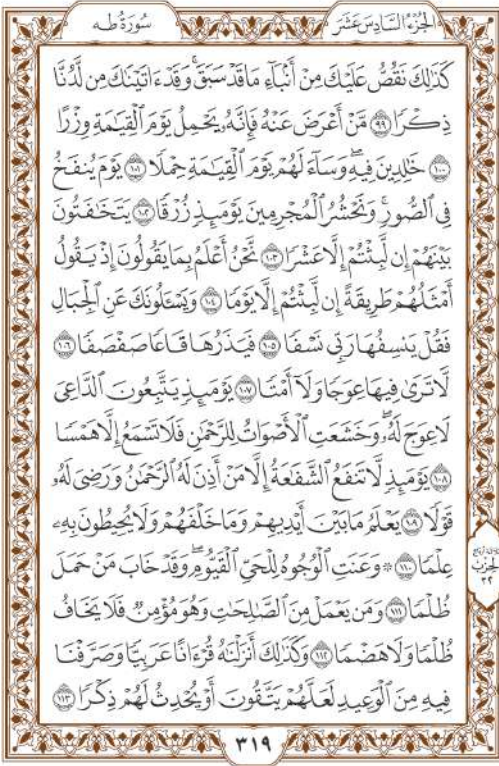 الجُزْءُ السَّادِسَ عَشَرَ
سُورَةُ طه
كَذَٰلِكَ نَقُصُّ عَلَيْكَ مِنْ أَنۢبَآءِ مَا قَدْ سَبَقَۚ وَقَدْ ءَاتَيْنَٰكَ مِن لَّدُنَّا
ذِكْرًا ٩٩ مَّنْ أَعْرَضَ عَنْهُ فَإِنَّهُۥ يَحْمِلُ يَوْمَ ٱلْقِيَٰمَةِ وِزْرًا
١٠٠ خَٰلِدِينَ فِيهِۖ وَسَآءَ لَهُمْ يَوْمَ ٱلْقِيَٰمَةِ حِمْلًا ١٠١ يَوْمَ يُنفَخُ
فِى ٱلصُّورِۚ وَنَحْشُرُ ٱلْمُجْرِمِينَ يَوْمَئِذٍ زُرْقًا ١٠٢ يَتَخَٰفَتُونَ
بَيْنَهُمْ إِن لَّبِثْتُمْ إِلَّا عَشْرًا ١٠٣ نَّحْنُ أَعْلَمُ بِمَا يَقُولُونَ إِذْ يَقُولُ
أَمْثَلُهُمْ طَرِيقَةً إِن لَّبِثْتُمْ إِلَّا يَوْمًا ١٠٤ وَيَسْـَٔلُونَكَ عَنِ ٱلْجِبَالِ
فَقُلْ يَنسِفُهَا رَبِّى نَسْفًا ١٠٥ فَيَذَرُهَا قَاعًا صَفْصَفًا ١٠٦
لَّا تَرَىٰ فِيهَا عِوَجًا وَلَآ أَمْتًا ١٠٧ يَوْمَئِذٍ يَتَّبِعُونَ ٱلدَّاعِىَ
لَا عِوَجَ لَهُۥۖ وَخَشَعَتِ ٱلْأَصْوَاتُ لِلرَّحْمَٰنِ فَلَا تَسْمَعُ إِلَّا هَمْسًا
١٠٨ يَوْمَئِذٍ لَّا تَنفَعُ ٱلشَّفَٰعَةُ إِلَّا مَنْ أَذِنَ لَهُ ٱلرَّحْمَٰنُ وَرَضِىَ لَهُۥ
قَوْلًا ١٠٩ يَعْلَمُ مَا بَيْنَ أَيْدِيهِمْ وَمَا خَلْفَهُمْ وَلَا يُحِيطُونَ بِهِۦ
عِلْمًا ١١٠ ۞ وَعَنَتِ ٱلْوُجُوهُ لِلْحَىِّ ٱلْقَيُّومِۖ وَقَدْ خَابَ مَنْ حَمَلَ
ظُلْمًا ١١١ وَمَن يَعْمَلْ مِنَ ٱلصَّٰلِحَٰتِ وَهُوَ مُؤْمِنٌ فَلَا يَخَافُ
ظُلْمًا وَلَا هَضْمًا ١١٢ وَكَذَٰلِكَ أَنزَلْنَٰهُ قُرْءَانًا عَرَبِيًّا وَصَرَّفْنَا
فِيهِ مِنَ ٱلْوَعِيدِ لَعَلَّهُمْ يَتَّقُونَ أَوْ يُحْدِثُ لَهُمْ ذِكْرًا ١١٣
الحِزْب
٣٢
٣١٩